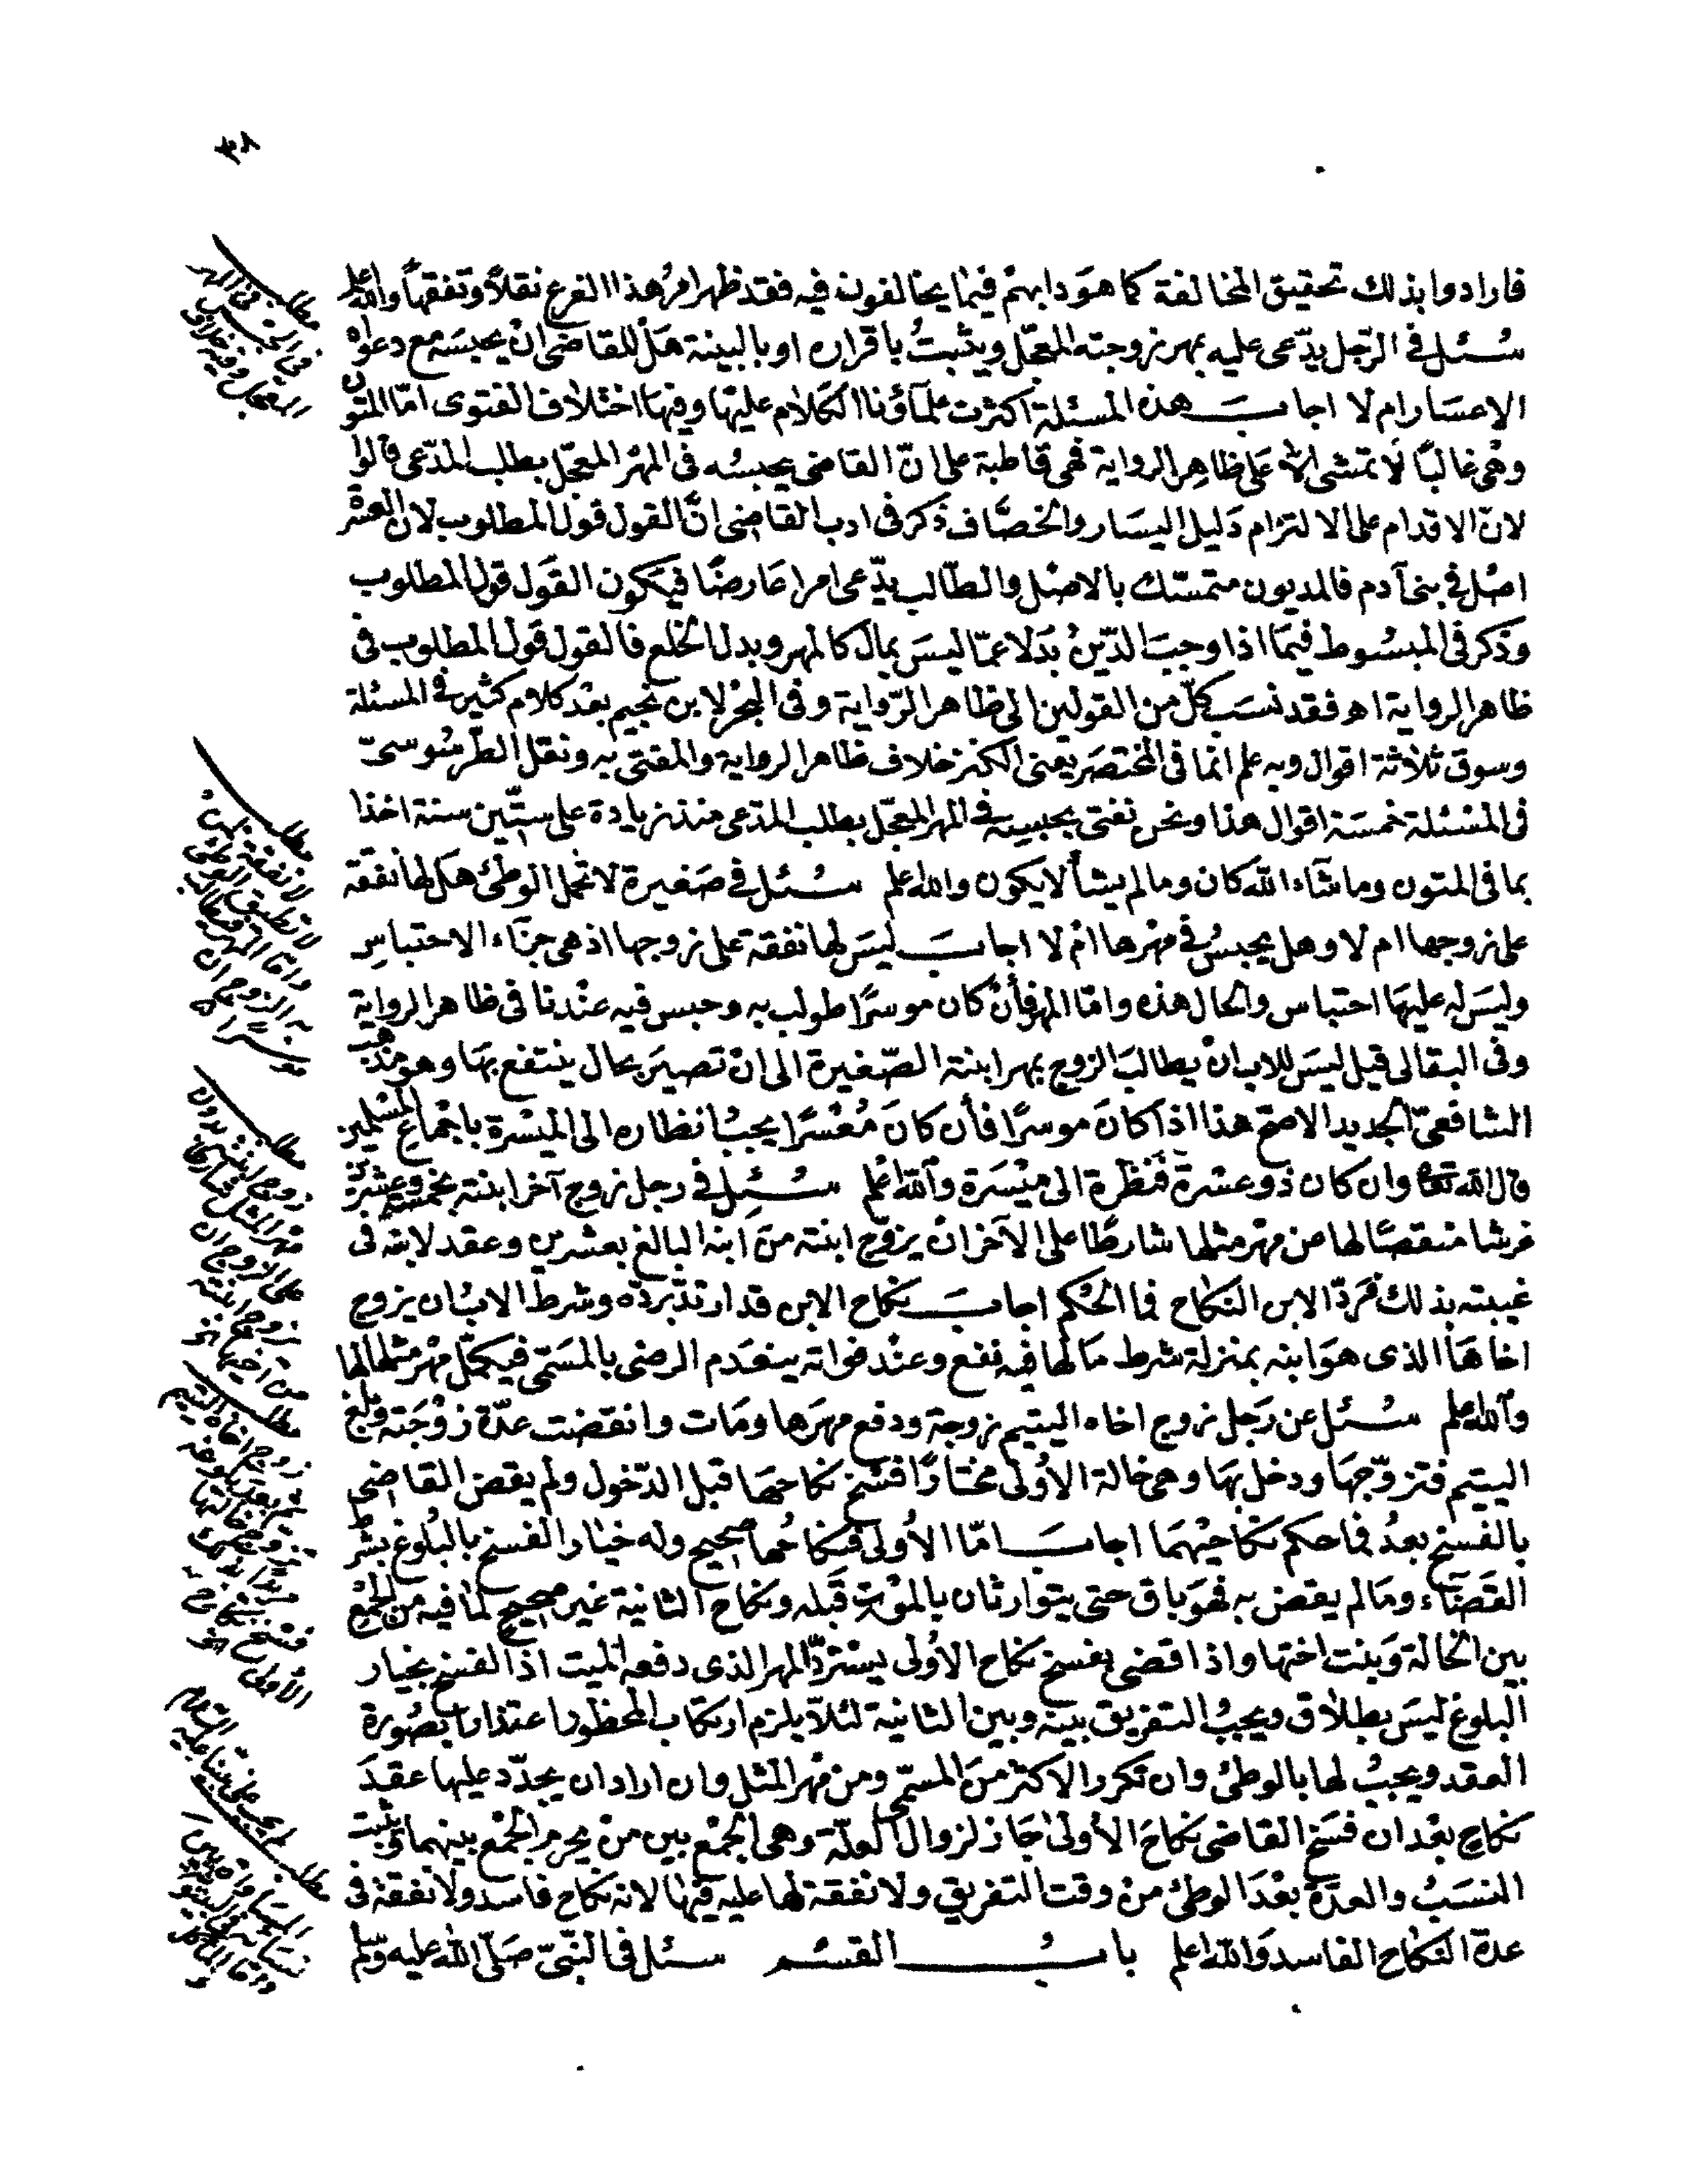 ٣٨
فارادوا بذلك تحقيق المخالفة كما هو دابهم فيما يخالفون فيه فقد ظهر امر هذا الفرع نقلا وتفقها والله اعلم
سئل في الرجل يدعى عليه بمهر زوجته المعجل ويثبت باقراره او بالبينة هل للقاضى ان يحبسه مع دعواه
الاعسار ام لا اجاب هذه المسئلة اكثرت علمآؤنا الكلام عليها وفيها اختلاف الفتوى امّا المتون
وهى غالبًا لا تمشى الا على ظاهر الرواية فهى قاطبة على انّ القاضى يحبسه فى المهر المعجل بطلب المدّعى قالوا
لانّ الاقدام على الالتزام دليل اليسار والخصّاف ذكر فى ادب القاضى انّ القول قول المطلوب لان العسر
اصل في بنى آدم فالمديون متمسّك بالاصل والطالب يدّعى امرا عارضًا فيكون القول قول المطلوب
وذكر فى المبسوط فيما اذا وجب الدّين بدلا عمّا ليس بمال كالمهر وبدل الخلع فالقول قول المطلوب فى
ظاهر الرواية اهـ فقد نسب كلّ من القولين الى ظاهر الرّواية وفى البحر لابن نجيم بعد كلام كثير في المسئلة
وسوق ثلاثة اقوال وبه علم انما فى المختصر يعنى الكنز خلاف ظاهر الرواية والمفتى به ونقل الطرسوسىّ
فى المسئلة خمسة اقوال هذا ونحن نفتى بحبسه فى المهر المعجّل بطلب المدّعى منذ زيادة على ستّين سنة اخذا
بما فى المتون وما شآء الله كان وما لم يشأ لا يكون والله اعلم سئل في صغيرة لا تحمل الوطئ هل لها نفقة
على زوجها ام لا وهل يحبس في مهرها ام لا اجاب ليس لها نفقة على زوجها اذ هى جزآء الاحتباس
وليس له عليها احتباس والحال هذه وامّا المهر فأن كان موسرًا طولب به وحبس فيه عندنا فى ظاهر الرواية
وفى البقالى قيل ليس للاب ان يطالب الزوج بمهر ابنته الصّغيرة الى ان تصير بحال ينتفع بها وهو مذهب
الشافعىّ الجديد الاصح هذا اذا كان موسرًا فأن كان مُعسرًا يجب انظاره الى الميسرة باجماع المسلمين
قال الله تعالى وان كان ذو عسرة فنظرة الى ميسرة والله اعلم سئل في رجل زوج آخر ابنته بخمسة وعشرين
غرشا منقصًا لها من مهر مثلها شارطًا على الآخر ان يزوج ابنته من ابنه البالغ بعشرين وعقد لابنه فى
غيبته بذلك فردّ الابن النكاح فما الحكم اجاب نكاح الابن قد ارتدّ بردّه وشرط الاب ان يزوج
اخاها الذى هو ابنه بمنزلة شرط ما لها فيه نفع وعند فواته ينعدم الرضى بالمسمّى فيكمّل مهر مثلها لها
والله اعلم سئل عن رجل زوج اخاه اليتيم زوجة ودفع مهرها ومات وانقضت عدّة زوجته وبلغ
اليتيم فتزوّجها ودخل بها وهى خالة الاولى مختارًا فسخ نكاحها قبل الدّخول ولم يقض القاضى
بالفسخ بعدُ فما حكم نكاحيهما اجاب امّا الاولى فنكاحها صحيح وله خيار الفسخ بالبلوغ بشرط
القضآء وما لم يقض به فهو باق حتى يتوارثان بالموت قبله ونكاح الثانية غير صحيح لما فيه من الجمع
بين الخالة وبنت اختها واذا قضى بفسخ نكاح الاولى يستردّ المهر الذى دفعه الميت اذ الفسخ بخيار
البلوغ ليس بطلاق ويجب التفريق بينه وبين الثانية لئلّا يلزم ارتكاب المحظور اعتذارا بصورة
العقد ويجب لها بالوطئ وان تكرر الاكثر من المسمّى ومن مهر المثل وان اراد ان يجدّد عليها عقد
نكاح بعد ان فسخ القاضى نكاح الأولى جاز لزوال العلّة وهى الجمع بين من يحرم الجمع بينهما ويثبت
النسب والعدّة بعد الوطئ من وقت التفريق ولا نفقة لها عليه فيها لانه نكاح فاسد ولا نفقة فى
عدة النكاح الفاسد والله اعلم باب القسم سئل فى النّبىّ صلّى الله عليه وسلم
مطلب
مطلب
لا نفقة لمن
لا تطيق الوطئ
وامّا المهر فيطالب
به الزوج ان
مطلب
زوج ابنته بدون
مهر المثل شارطا
على الزوج ان
يزوج ابنته
مطلب
زوج اخاه اليتيم
ثم بعد بلوغه
تزوج خالتها
فسخ نكاح
الأولى
مطلب